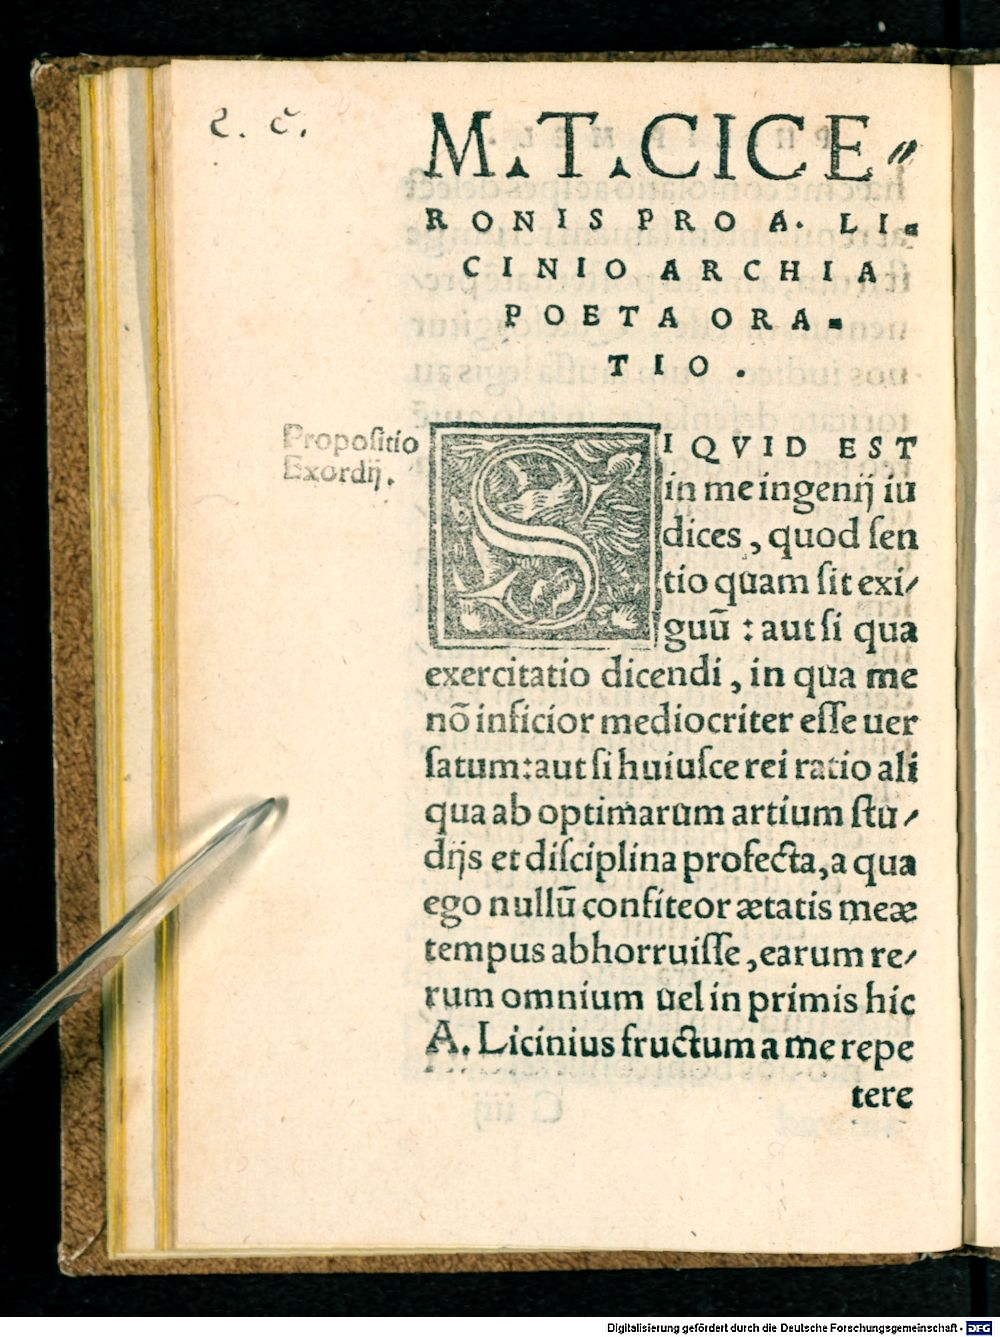 M.T.CICE⸗
RONIS PRO A. LI⸗
CINIO ARCHIA
POETA ORA⸗
TIO.
Propoſitio
Exordij.
SIQVID EST
in me ingenij iu
dices, quod ſen
tio quam ſit exi⸗
guū : aut ſi qua
exercitatio dicendi, in qua me
nō inficior mediocriter eſſe uer
ſatum: aut ſi huiuſce rei ratio ali
qua ab optimarum artium ſtu⸗
dijs et diſciplina profecta, a qua
ego nullū confiteor ætatis meæ
tempus abhorruiſſe, earum re⸗
rum omnium uel in primis hic
A. Licinius fructum a me repe
tere
Digitalisierung gefördert durch die Deutsche Forschungsgemeinschaft - DFG